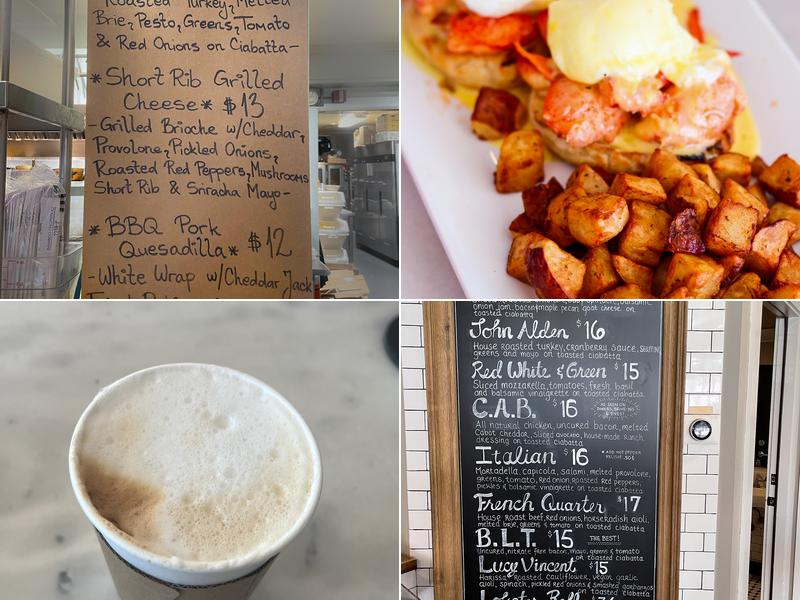 Roasted Turkey, Melted
Brie, Pesto, Greens, Tomato
& Red Onions on Ciabatta-
*Short Rib Grilled
Cheese* $13
-Grilled Brioche w/Cheddar,
Provolone, Pickled Onions,
Roasted Red Peppers, Mushrooms
Short Rib & Sriracha Mayo-
*BBQ Pork
Quesadilla* $12
-White Wrap w/Cheddar Jack
onion jam, bacon, maple pecan goat cheese on
toasted ciabatta
John Alden $16
House roasted turkey, cranberry sauce, stuffing
greens and mayo on toasted ciabatta
Red White & Green $15
Sliced mozzarella, tomatoes, fresh basil
and balsamic vinaigrette on toasted ciabatta
C.A.B. $16
AS SEEN ON
DINERS, DRIVE-INS
& DIVES!
All natural chicken, uncured bacon, melted
Cabot cheddar, sliced avocado, house-made ranch
dressing on toasted ciabatta
Italian $16
* ADD HOT PEPPER
RELISH .50¢
Mortadella, capicola, salami, melted provolone,
greens, tomato, red onion, roasted red peppers,
pickles & balsamic vinaigrette on toasted ciabatta
French Quarter $17
House roast beef, red onions, horseradish aioli,
melted brie, greens & tomato on toasted ciabatta
B.L.T. $15 THE BEST!
Uncured, nitrate free bacon, mayo, greens & tomato
on toasted ciabatta
Lucy Vincent $15
Harissa roasted cauliflower, vegan garlic
aioli, spinach, pickled red onions & smashed garbanzos
on toasted ciabatta
Lobster Roll